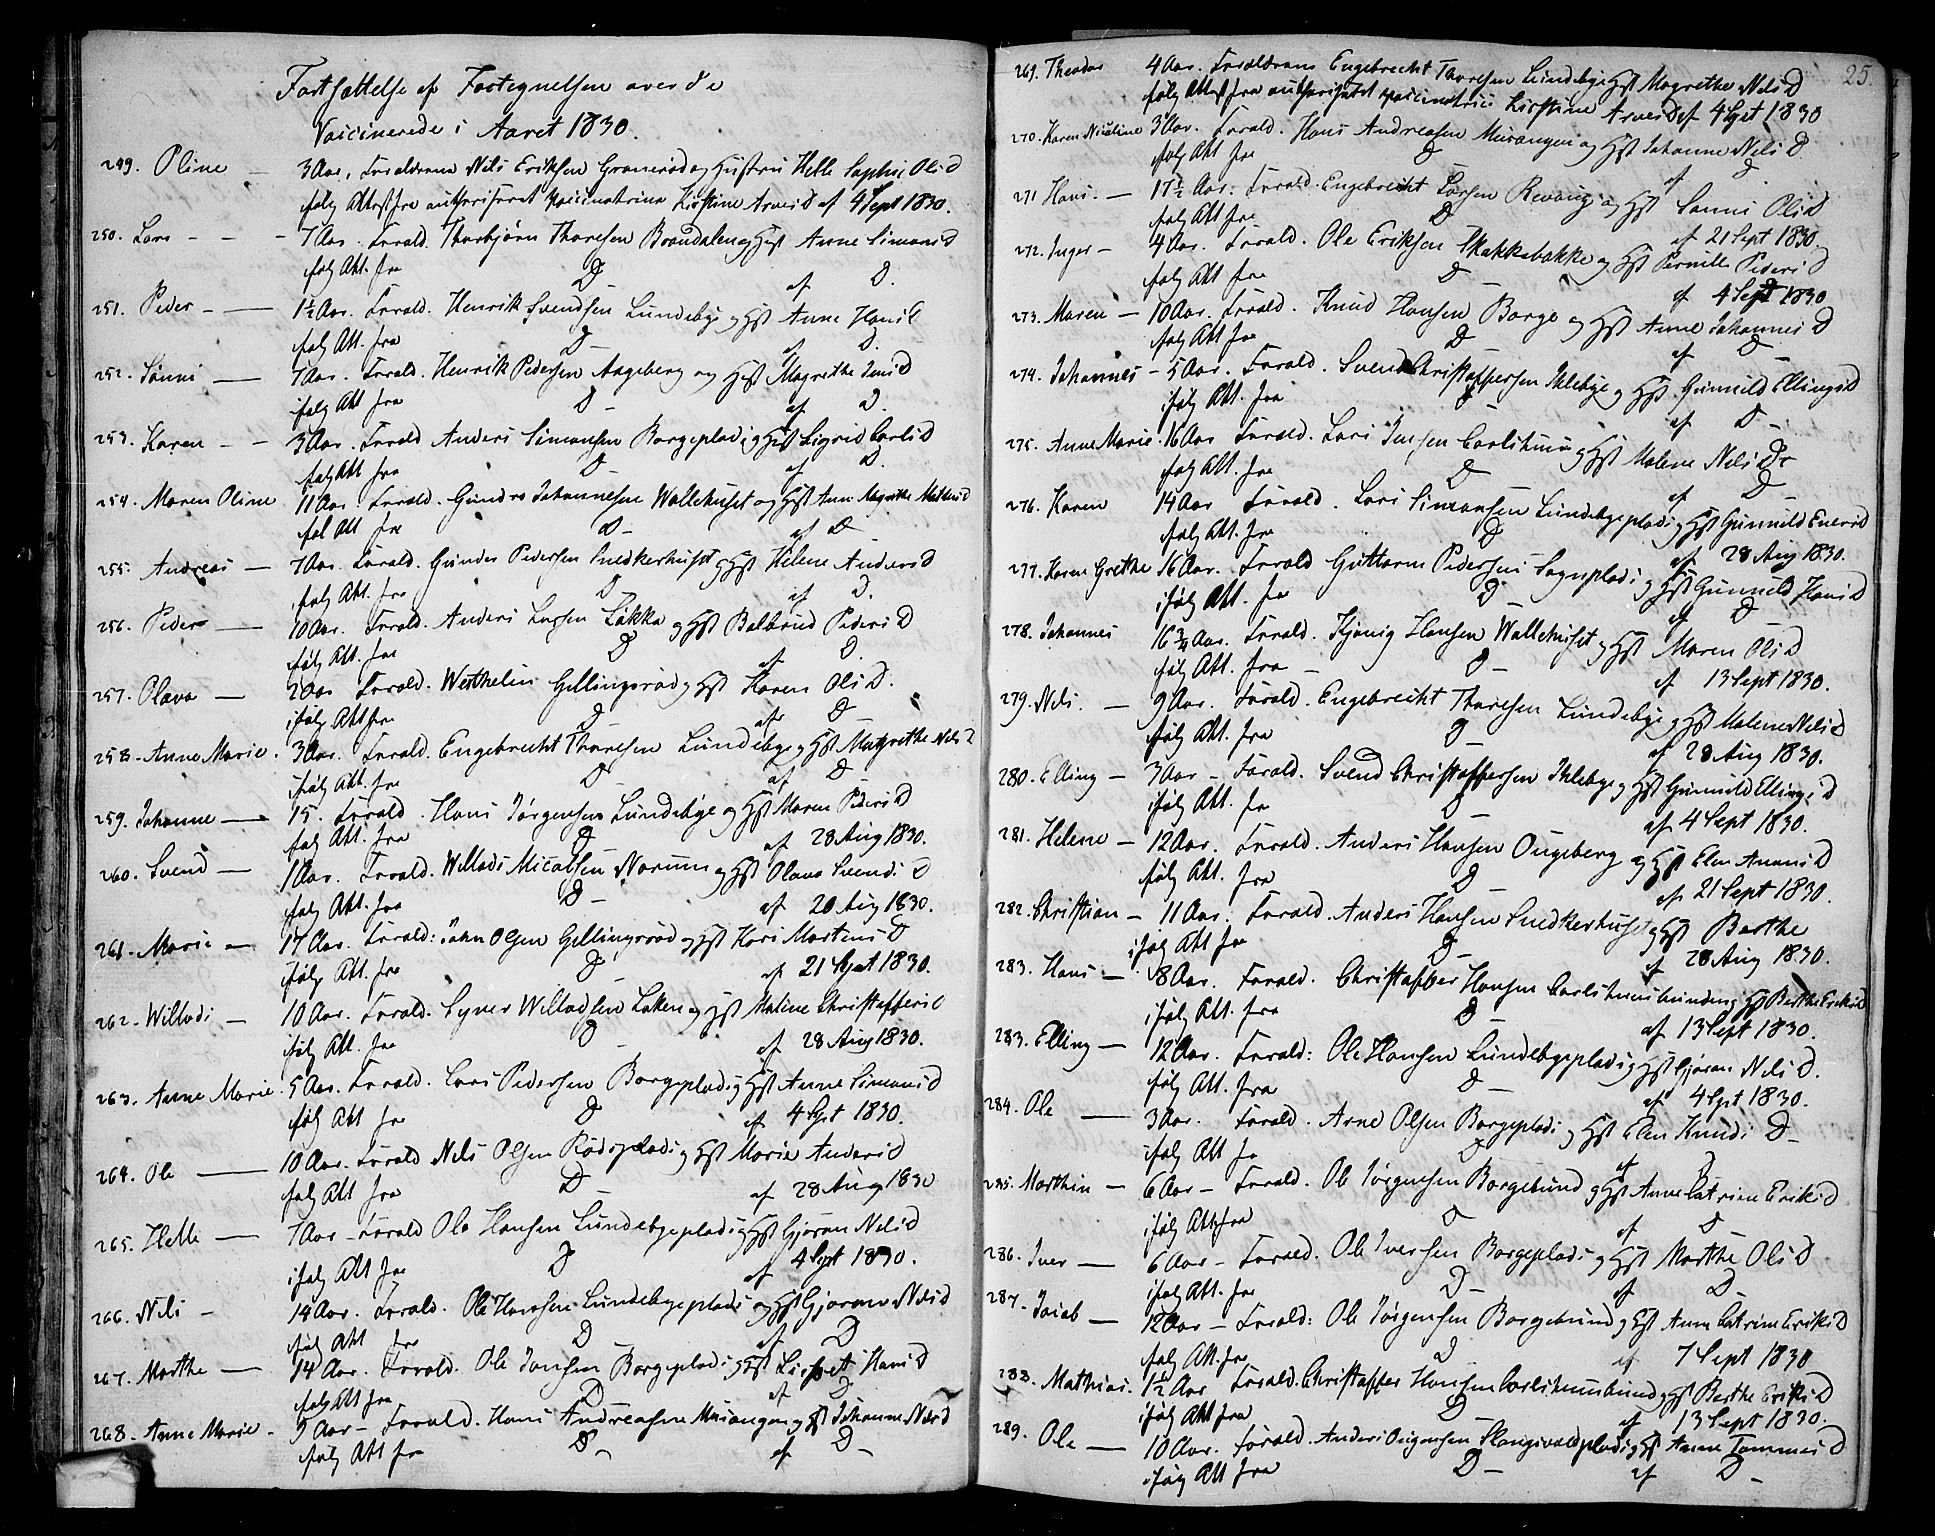 Fortsættelse af Fortegnelsen over de
Vaccinerede i Aaret 1830.
249. Oline — 3 Aar, Forældrene Nils Eriksen Granerød og Hustru Helle Sophie Olsd
følg Attest fra authoriseret Vaccinatrice Kirstine Arvesd af 4 Sept 1830.
250. Lars - - - 7 Aar. Foræld. Thorbjørn Thoresen Brondalen og Hst Anne Simonsd
følg Att. fra D af D.
251. Peder - — 1½ Aar. Foræld. Henrik Svendsen Lundebye og Hst Anne Hansd
følg Att. fra D - af D.
252. Sønni — 7 Aar. Foræld. Henrik Pedersen Aageberg og Hst Magrethe Jensd
ifølg Att fra D - af D.
253. Karen - - 3 Aar. Foræld Anders Simonsen Borgeplads og Hst Sigrid Carlsd
følg Att fra D - af D.
254. Maren Oline 11 Aar. Foræld. Gunder Johannesen Wallehuset og Hst Anne Magrethe Mathisd
føl Att fra D - af D -
255. Andreas — 7 Aar. Foræld. Gunder Pedersen Snedkerhuset og Hst Helene Andersd
ifølg Att. fra D - af D.
256. Peder — 10 Aar. Foræld. Anders Larsen Løkka og Hst Valborud Pedersd
følg Att. fra D af D.
257. Olava — 2 Aar Foræld. Westhelin Gellingsrød og Hst Karen Olsd.
ifølg Att fra D af D -
258. Anne Marie. 3 Aar. Foræld. Engebrecht Thoresen Lundebye og Hst Magrethe Nilsd
ifølg Att. fra D - af D -
259. Johanne — 15. Foræld. Hans Jørgensen Lundebye og Hst Maren Pedersd
følg Att. fra D af 28 Aug 1830.
260. Svend — 1 Aar. Foræld. Willads Micalsen Norum og Hst Olava Svendsd
følg Att. fra D - af 20 Aug 1830.
261. Marie — 17 Aar. Foræld: John Olsen Gellingsrød og Hst Kari Mortensd
ifølg Att. fra D - af 21 Sept 1830.
262. Willads — 10 Aar. Foræld. Syver Willadsen Løken og Hst Maline Christoffersd
ifølg Att. fra D - af 28 Aug 1830.
263. Anne Marie. 5 Aar. Foræld. Lars Pedersen Borgeplads og Hst Anne Simonsd
følg Att fra D af 4 Sept 1830.
264. Ole — 10 Aar. Foræld Nils Olsen Rødsplads og Hst Maria Andersd
følg Att fra D - af 28 Aug 1830
265. Helle — 7 Aar - Foræld Ole Hansen Lundebyeplads og Hst Gjøran Nilsd
ifølg Att fra D af 4 Sept 1830.
266. Nils - 14 Aar. Foræld. Ole Hansen Lundebyeplads og Hst Gjøran Nilsd
følg Att fra D - af D
267. Marthe — 14 Aar. Foræld. Ole Jonsen Borgeplads og Hst Lisbet Hansd
følg Att fra D af D
268. Anne Marie - 9 Aar - Foræld. Hans Andreasen Misangen og Hst Johanne Nilsd
følg Att fra D - af D -
25.
269. Theodor 4 Aar. Forældrene Engebrecht Thoresen Lundebye og Hst Magrethe Nilsd
følg Attest fra authoriseret Vaccinatrice Kirstine Arvesd af 4 Sept 1830
270. Karen Nicoline 3 Aar. Foræld. Hans Andreasen Misangen og Hst Johanne Nilsd
følg Att fra D af D
271 Hans. — 17½ Aar. Foræld. Engebrecht Larsen Revaug og Hst Sønni Olsd
følg Att fra D af 21 Sept 1830
272. Inger — 4 Aar. Foræld. Ole Eriksen Skakkebakke og Hst Pernille Pedersd
følg Att fra D - af 4 Sept 1830
273. Maren — 10 Aar. Foræld. Knud Hansen Borge og Hst Anne Johannesd
følg Att fra D af D -
274. Johannes - 5 Aar. Foræld. Svend Christoffersen Iklebye og Hst Gunnild Ellingsd
ifølg Att. fra D - af D -
275. Anne Marie. 16 Aar Foræld. Lars Jensen Carlshuus og Hst Malene Nilsd
følg Att. fra D af D -
276. Karen 14 Aar Foræld. Lars Simonsen Lundebyeplads og Hst Gunnild Enersd
følg Att. fra D af 28 Aug 1830.
277. Karen Grethe 16 Aar. Foræld Guttorm Pedersen Sogneplads og Hst Gunnild Hansd
ifølg Att. fra D - af D
278. Johannes 16¾ Aar. Foræld. Kjønig Hansen Wallehuset og Hst Maren Olsd
følg Att. fra — D - af 13 Sept 1830.
279. Nils. — 9 Aar. Foræld. Engebrecht Thoresen Lundebye og Hst Malene Nilsd
følg Att. fra D - af 28 Aug 1830.
280. Elling — 3 Aar - Foræld. Svend Christoffersen Iklebye og Hst Gunnild Ellingsd
ifølg Att. fra D - af 4 Sept 1830.
281. Helene — 12 Aar. Foræld. Anders Hansen Ougeberg og Hst Elen Amunsd
følg Att. fra D - af 21 Sept 1830.
282. Christian — 11 Aar. Foræld. Anders Hansen Snedkerhuset og Hst Berthe
ifølg Att fra D - af 28 Aug 1830.
283. Hans — 8 Aar. Foræld. Christoffer Hansen Carlshuusbunden og Hst Berthe Eriksd
ifølg Att. fra D - af 13 Sept 1830.
283. Elling — 12 Aar. Foræld: Ole Hansen Lundebyeplads og Hst Gjøran Nilsd.
følg Att. fra D - af 4 Sept 1830.
284. Ole — 3 Aar. Foræld. Arne Olsen Borgeplads og Hst Elen Knuds D -
ifølg Att fra D af D
285. Marthin — 6 Aar - Foræld. Ole Jørgensen Borgebund og Hst Anne Catrine Eriksd
ifølg Att fra D af D -
286. Iver — 6 Aar - Foræld. Ole Iversen Borgeplads og Hst Marthe Olsd
ifølg Att. fra D - af D -
287. Jacob — 12 Aar - Foræld: Ole Jørgensen Borgebund og Hst Anne Catrine Eriksd
følg Att. fra D af 7 Sept 1830
288. Mathias. 1½ Aar Foræld. Christoffer Hansen Carlshuusbund og Hst Berthe Eriksd
ifølg Att fra D - af 13 Sept 1830.
289. Ole — 10 Aar. Foræld. Anders Jørgensen Slangsvoldplads og Hst Anne Tommesd
ifølg Att fra D - af D -